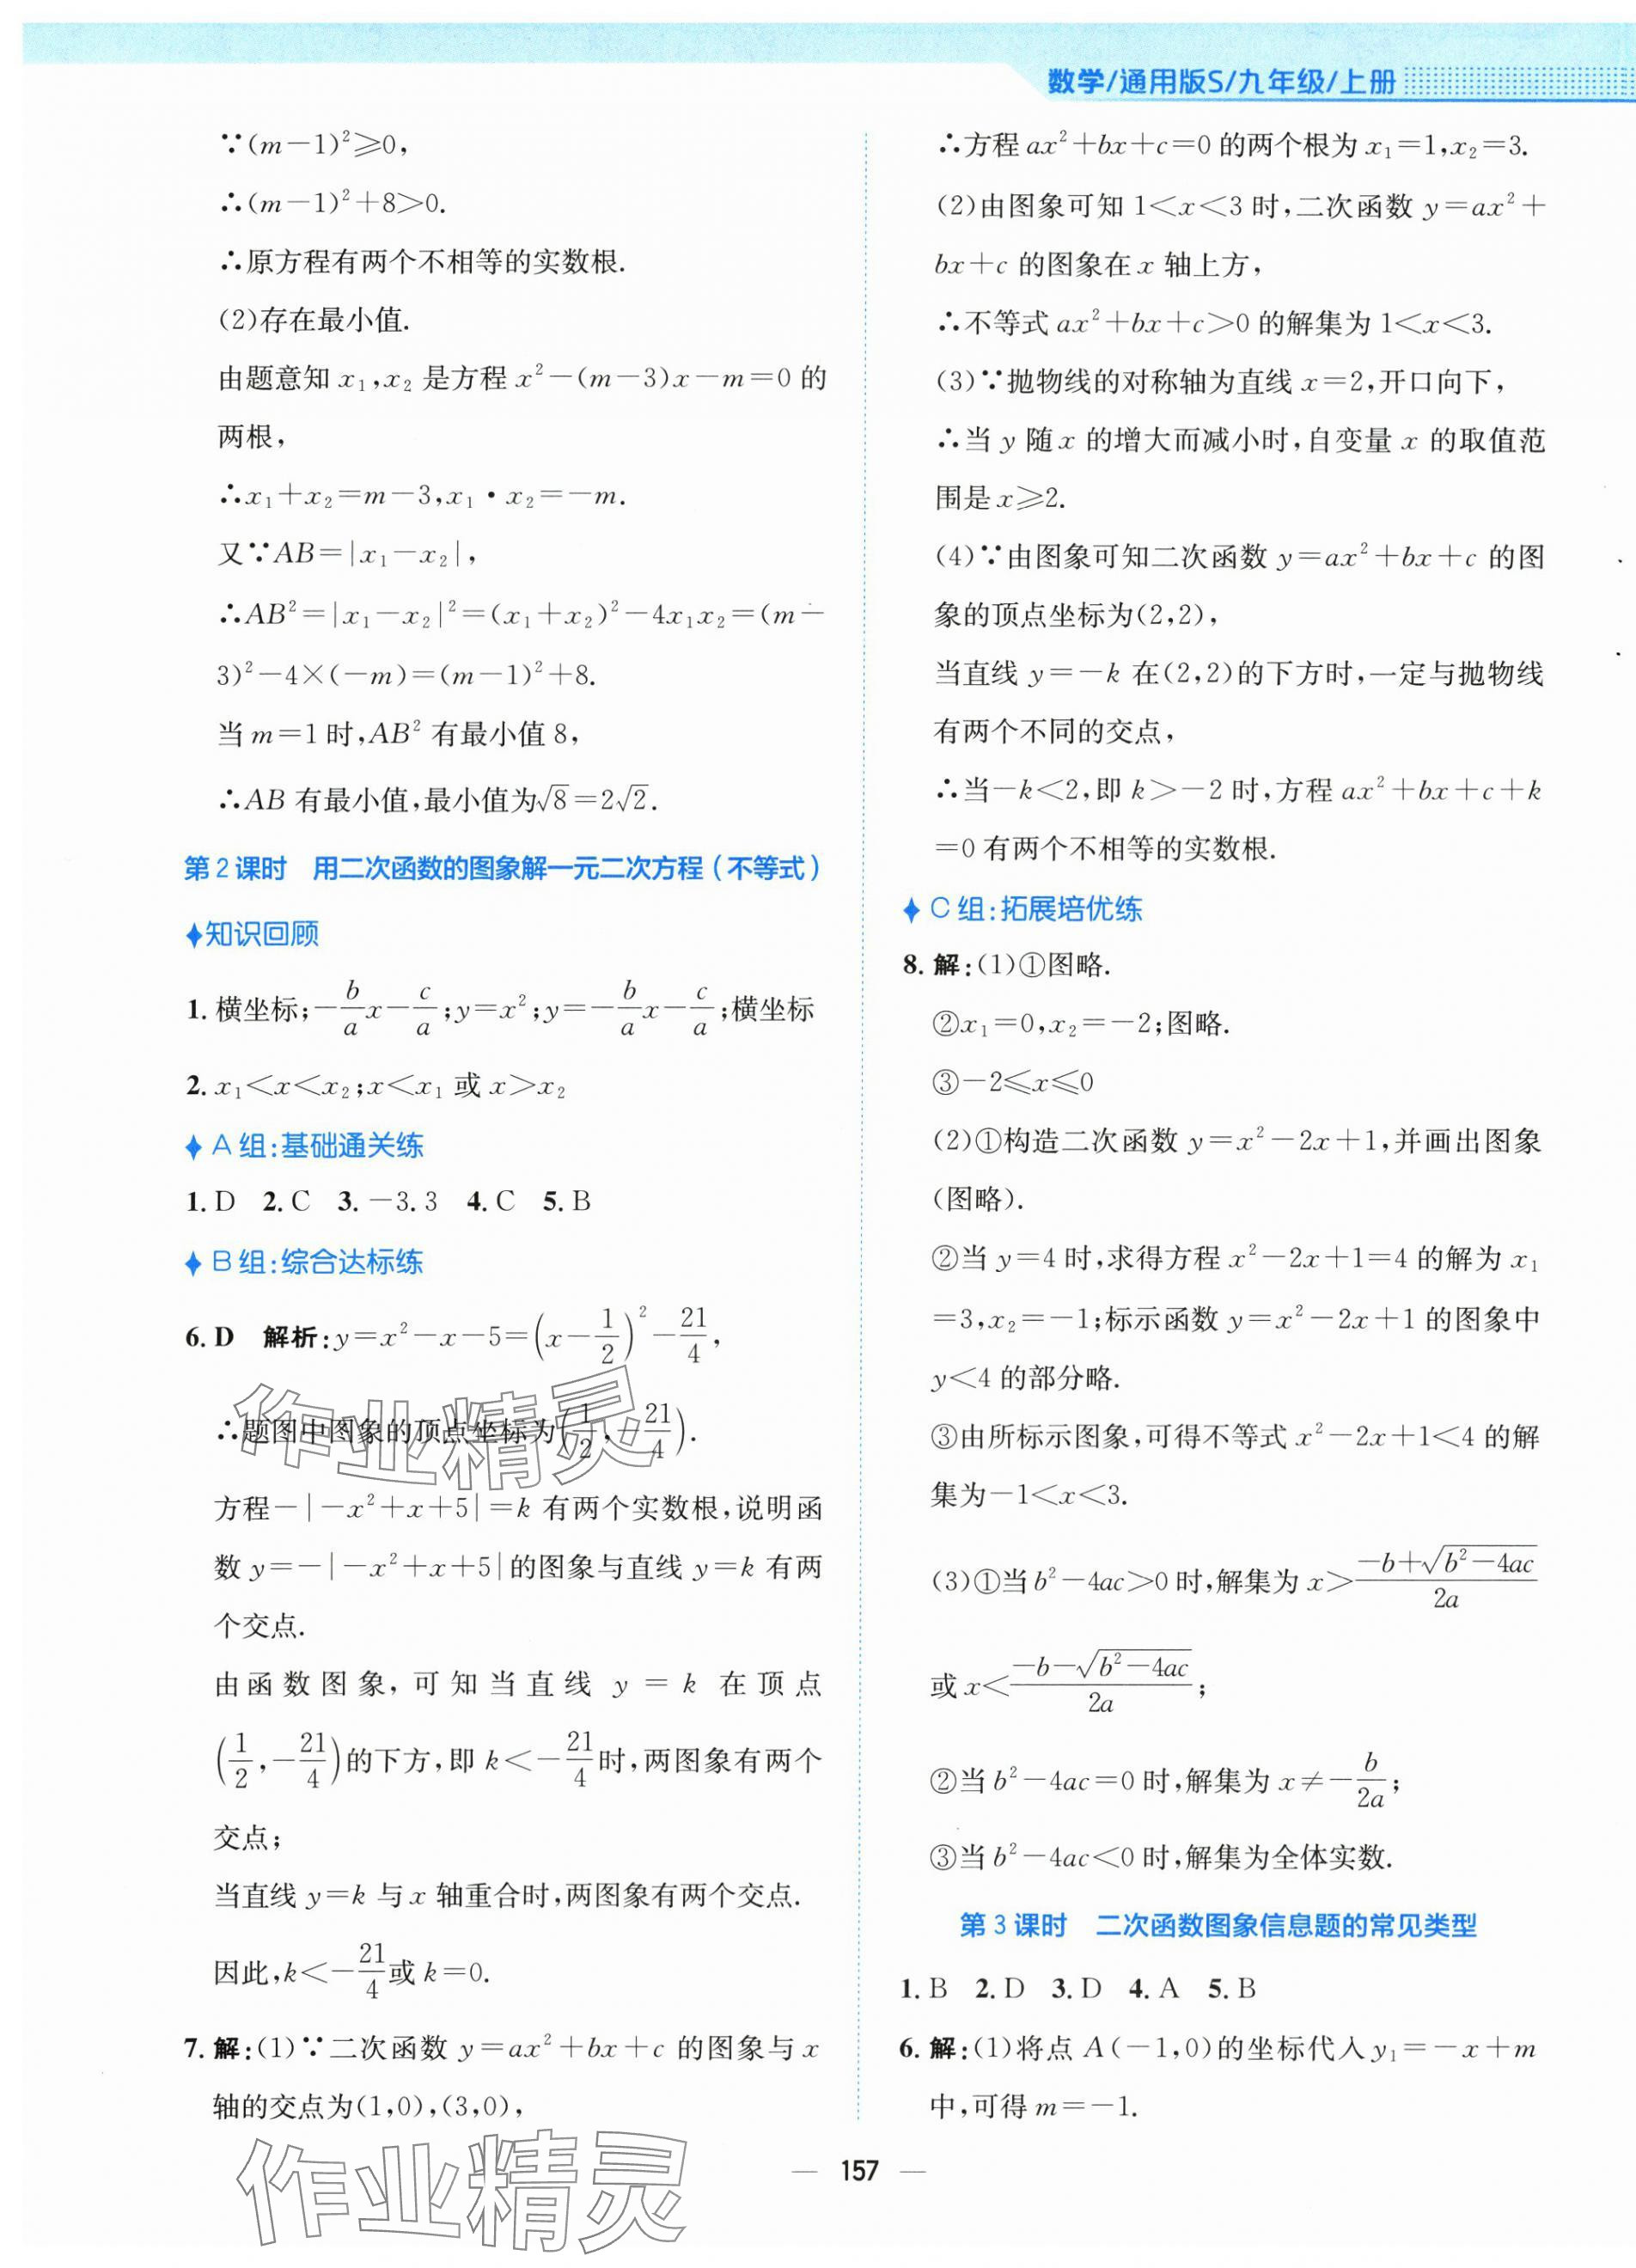 数学/通用版S/九年级/上册
∵(m－1)²≥0,
∴(m－1)²＋8＞0.
∴原方程有两个不相等的实数根.
(2)存在最小值.
由题意知 x₁,x₂ 是方程 x²－(m－3)x－m＝0 的
两根,
∴x₁＋x₂＝m－3,x₁·x₂＝－m.
又∵AB＝|x₁－x₂|,
∴AB²＝|x₁－x₂|²＝(x₁＋x₂)²－4x₁x₂＝(m－
3)²－4×(－m)＝(m－1)²＋8.
当 m＝1 时,AB² 有最小值 8,
∴AB 有最小值,最小值为√8＝2√2.
第 2 课时 用二次函数的图象解一元二次方程（不等式）
知识回顾
1. 横坐标;－b/a x－c/a;y＝x²;y＝－b/a x－c/a;横坐标
2. x₁＜x＜x₂;x＜x₁ 或 x＞x₂
A 组:基础通关练
1. D 2. C 3. －3.3 4. C 5. B
B 组:综合达标练
6. D 解析:y＝x²－x－5＝(x－1/2)²－21/4,
∴题图中图象的顶点坐标为(1/2,－21/4).
方程－|－x²＋x＋5|＝k 有两个实数根,说明函
数 y＝－|－x²＋x＋5|的图象与直线 y＝k 有两
个交点.
由函数图象,可知当直线 y＝k 在顶点
(1/2,－21/4)的下方,即 k＜－21/4时,两图象有两个
交点;
当直线 y＝k 与 x 轴重合时,两图象有两个交点.
因此,k＜－21/4或 k＝0.
7. 解:(1)∵二次函数 y＝ax²＋bx＋c 的图象与 x
轴的交点为(1,0),(3,0),
∴方程 ax²＋bx＋c＝0 的两个根为 x₁＝1,x₂＝3.
(2)由图象可知 1＜x＜3 时,二次函数 y＝ax²＋
bx＋c 的图象在 x 轴上方,
∴不等式 ax²＋bx＋c＞0 的解集为 1＜x＜3.
(3)∵抛物线的对称轴为直线 x＝2,开口向下,
∴当 y 随 x 的增大而减小时,自变量 x 的取值范
围是 x≥2.
(4)∵由图象可知二次函数 y＝ax²＋bx＋c 的图
象的顶点坐标为(2,2),
当直线 y＝－k 在(2,2)的下方时,一定与抛物线
有两个不同的交点,
∴当－k＜2,即 k＞－2 时,方程 ax²＋bx＋c＋k
＝0 有两个不相等的实数根.
C 组:拓展培优练
8. 解:(1)①图略.
②x₁＝0,x₂＝－2;图略.
③－2≤x≤0
(2)①构造二次函数 y＝x²－2x＋1,并画出图象
(图略).
②当 y＝4 时,求得方程 x²－2x＋1＝4 的解为 x₁
＝3,x₂＝－1;标示函数 y＝x²－2x＋1 的图象中
y＜4 的部分略.
③由所标示图象,可得不等式 x²－2x＋1＜4 的解
集为－1＜x＜3.
(3)①当 b²－4ac＞0 时,解集为 x＞(－b＋√(b²－4ac))/2a
或 x＜(－b－√(b²－4ac))/2a;
②当 b²－4ac＝0 时,解集为 x≠－b/2a;
③当 b²－4ac＜0 时,解集为全体实数.
第 3 课时 二次函数图象信息题的常见类型
1. B 2. D 3. D 4. A 5. B
6. 解:(1)将点 A(－1,0)的坐标代入 y₁＝－x＋m
中,可得 m＝－1.
— 157 —
作业精灵
作业精灵